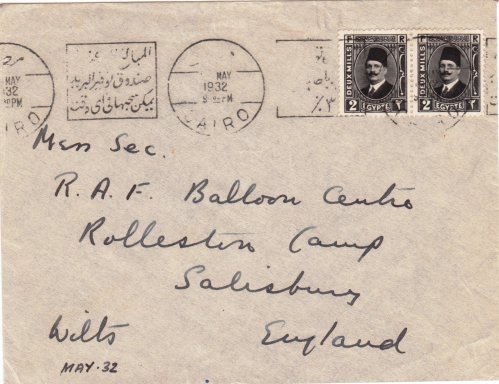 MAY
1932
PM
CAIRO
صندوق توفير البريد
يمكن سحبها فى اى وقت
MAY
1932
PM
CAIRO
٣٪
DEUX MILLS
2 EGYPTE ٢
DEUX MILLS
2 EGYPTE ٢
Mess Sec.
R.A.F. Balloon Centre
Rolleston Camp
Salisbury
Wilts England
MAY·32